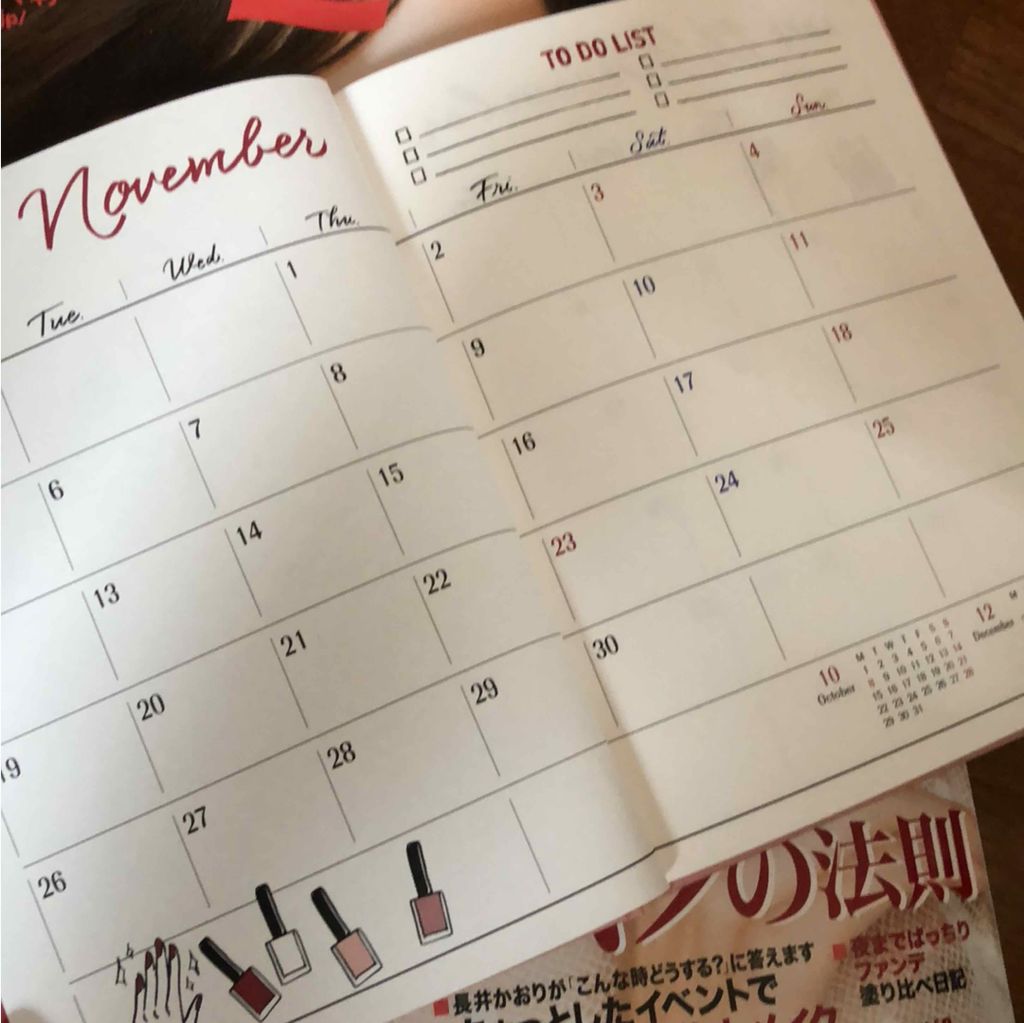 November
TO DO LIST
Tue. Wed. Thu. Fri. Sat. Sun.
1 2 3 4
6 7 8 9 10 11
13 14 15 16 17 18
19 20 21 22 23 24 25
26 27 28 29 30
10
October
M T W T F S S
1 2 3 4 5 6 7
8 9 10 11 12 13 14
15 16 17 18 19 20 21
22 23 24 25 26 27 28
29 30 31
12
December
M
の法則
長井かおりが「こんな時どうする?」に答えます
としたイベントで
メイク
夜までぱっちり
ファンデ
塗り比べ日記